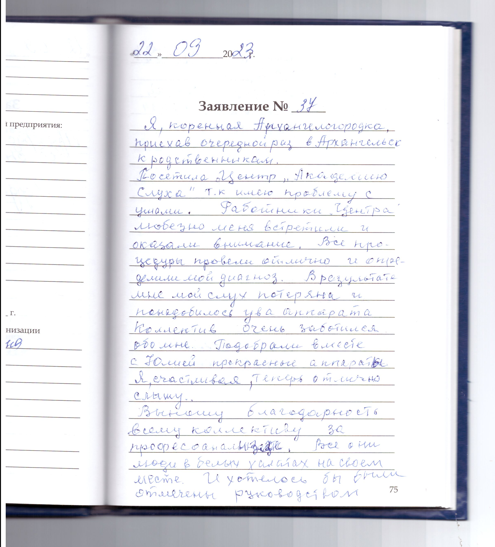 "22" 09 2023г.
Заявление № 37
я предприятия:
Я, коренная Архангелогородка,
приехав очередной раз в Архангельск
к родственникам.
Посетила Центр „Академию
Слуха" т.к имею проблему с
ушами. Работники Центра
любезно меня встретили и
оказали внимание. Все про-
цедуры провели отлично и опре-
делили мой диагноз. В результате
мне мой слух потеряна и
понадобилось два аппарата
Коллектив очень заботился
обо мне. Подобрали вместе
с Юлией прекрасные аппараты
Я, счастливая, теперь отлично
слышу.
, г.
низации
Выношу благодарность
всему коллективу за
Все они
люди в белых халатах на своем
месте. И хотелось бы были
отмечены руководством
75